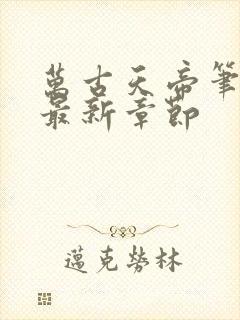 萬古天帝筆
最新章節
邁克勞林